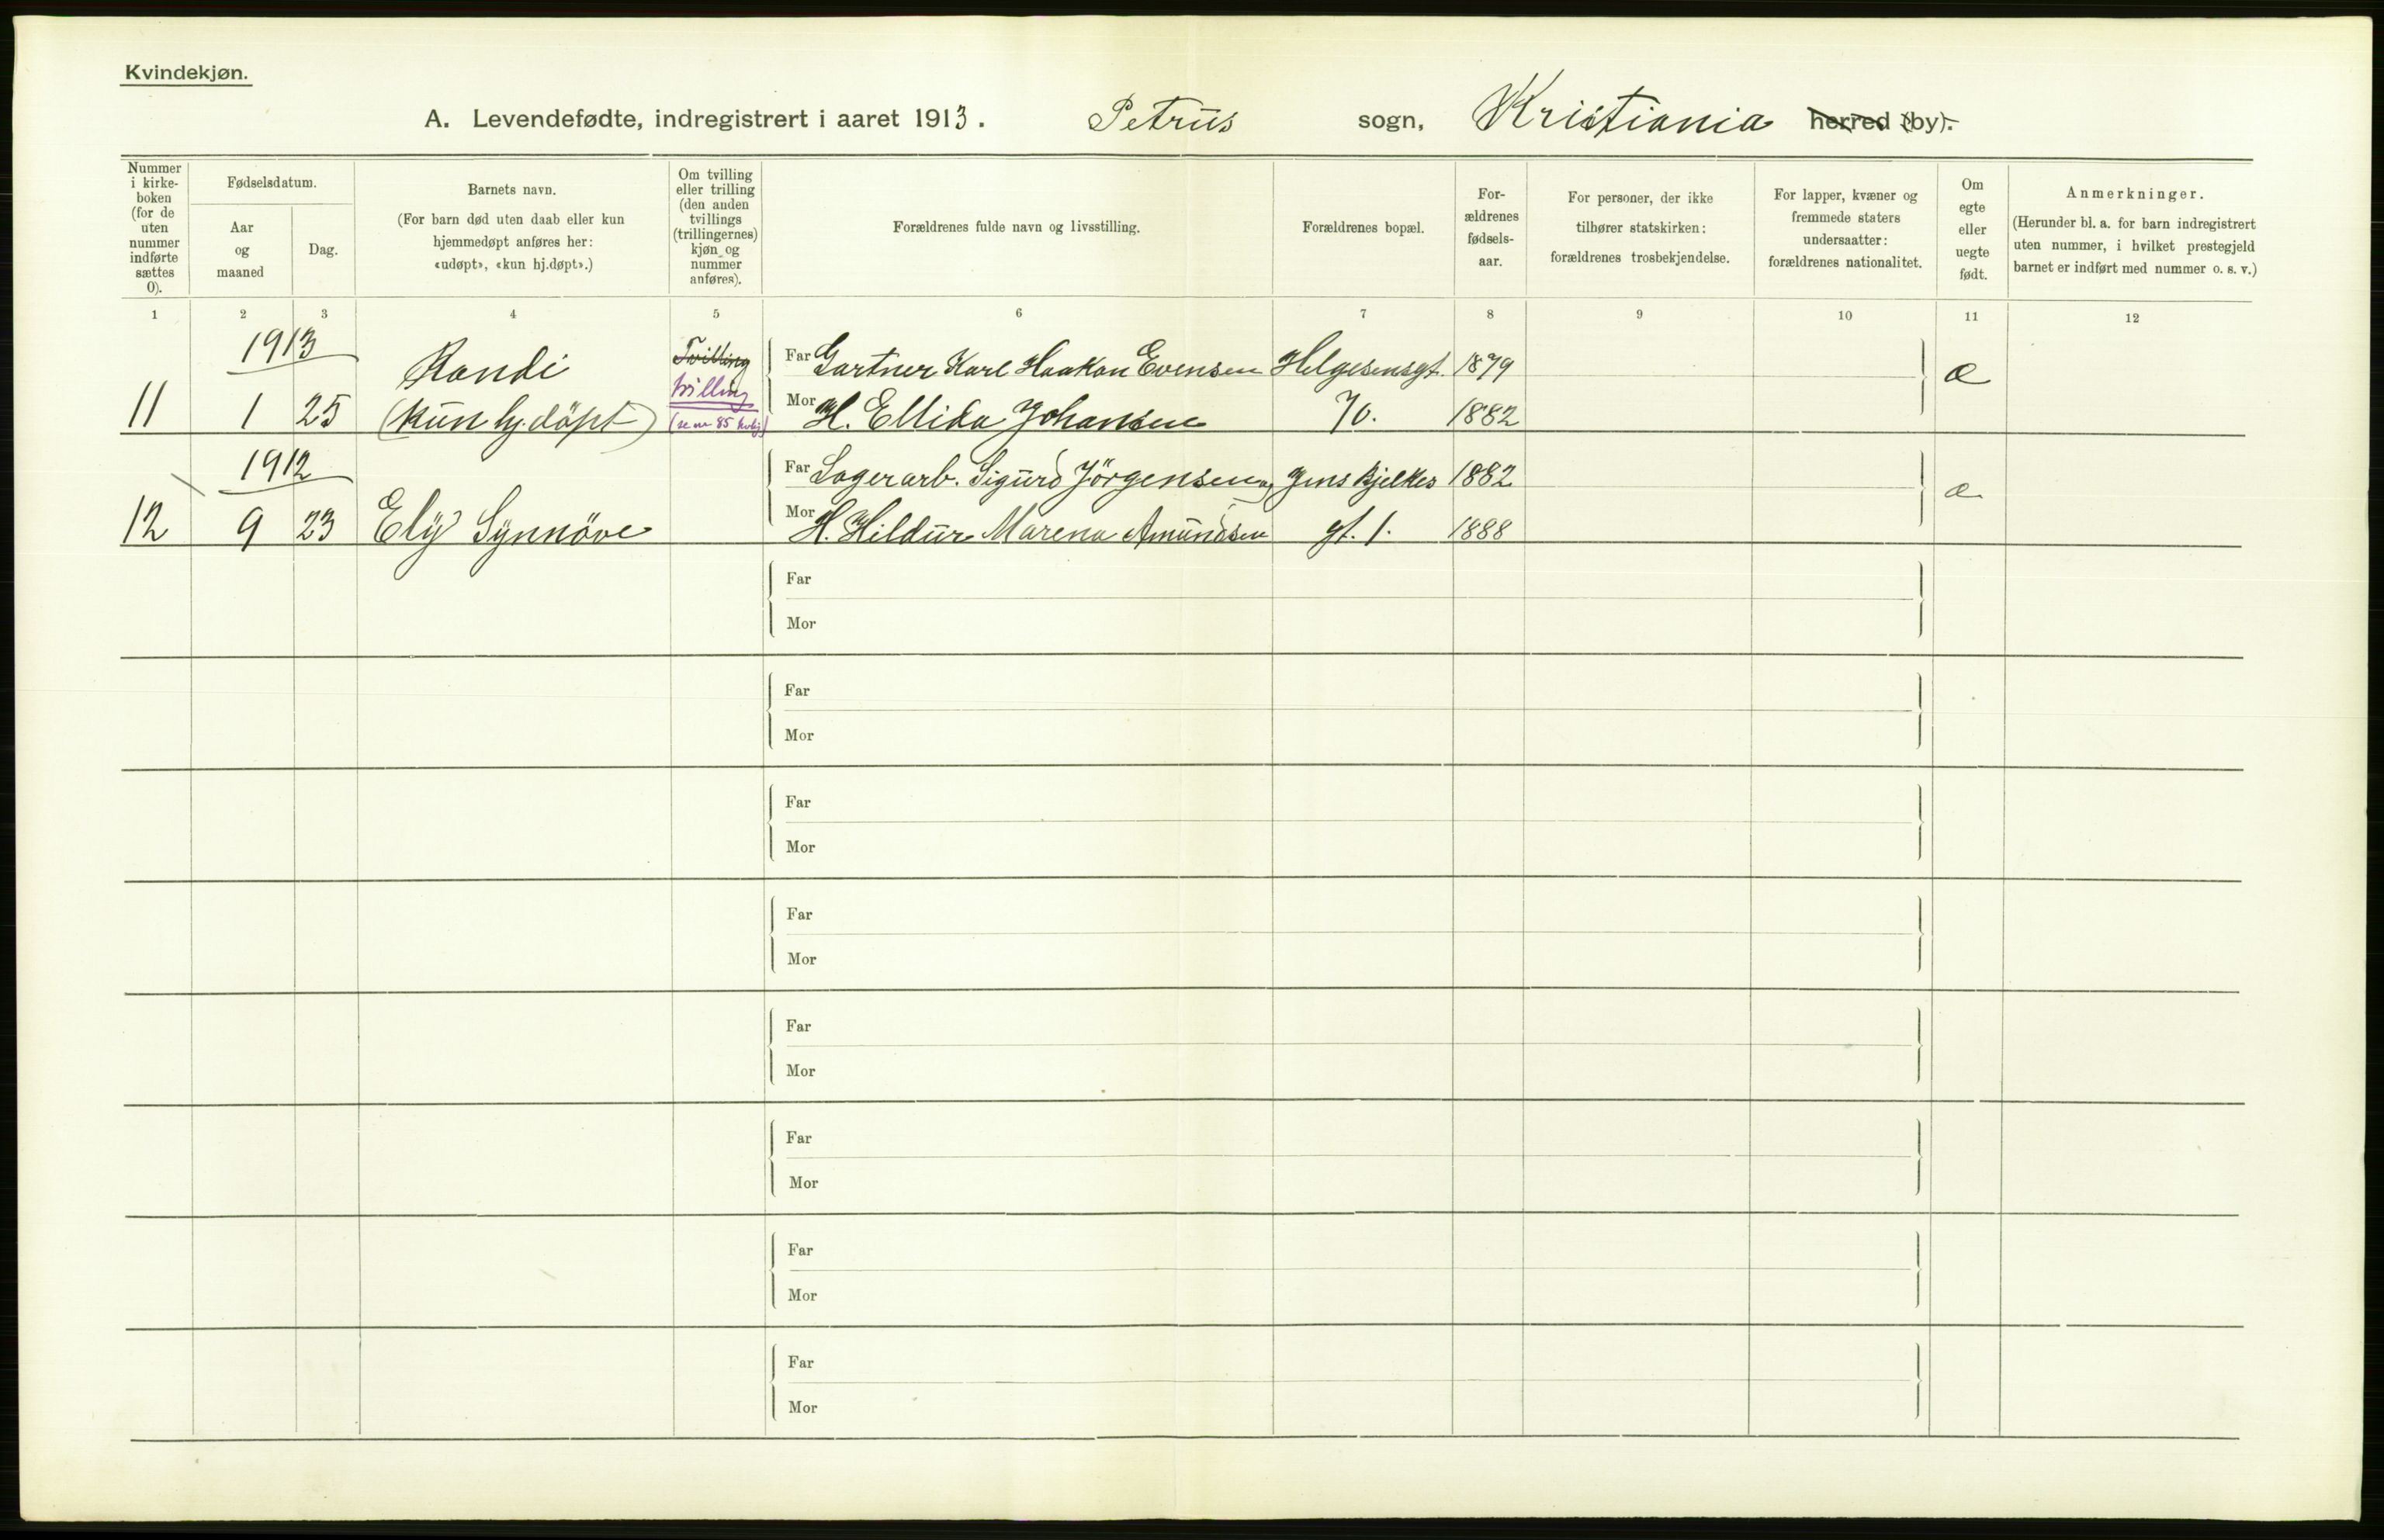 Kvindekjøn.
A. Levendefødte, indregistrert i aaret 1913. Petrus sogn, Kristiania herred (by).
Nummer i kirke-boken (for de uten nummer indførte sættes 0).
Fødselsdatum.
Aar og maaned
Dag.
Barnets navn.
(For barn død uten daab eller kun hjemmedøpt anføres her: «udøpt», «kun hj.døpt».)
Om tvilling eller trilling (den anden tvillings (trillingernes) kjøn og nummer anføres).
Forældrenes fulde navn og livsstilling.
Forældrenes bopæl.
For-ældrenes fødsels-aar.
For personer, der ikke tilhører statskirken: forældrenes trosbekjendelse.
For lapper, kvæner og fremmede staters undersaatter: forældrenes nationalitet.
Om egte eller uegte født.
Anmerkninger.
(Herunder bl. a. for barn indregistrert uten nummer, i hvilket prestegjeld barnet er indført med nummer o. s. v.)
1 2 3 4 5 6 7 8 9 10 11 12
1913 Randi Tvilling Far Gartner Karl Haakon Evensen Helgesensgt. 1879 æ
11 1 25 (kun hj. döpt) tvilling (se nr 85 ) Mor H. Ellida Johansen 70. 1882
1912 Far Lagerarb. Sigurd Jörgensen og Jens Bjelkes 1882 æ
12 9 23 Ely Synnöve Mor H. Hildur Marena Amundsen gt. 1. 1888
Far
Mor
Far
Mor
Far
Mor
Far
Mor
Far
Mor
Far
Mor
Far
Mor
Far
Mor